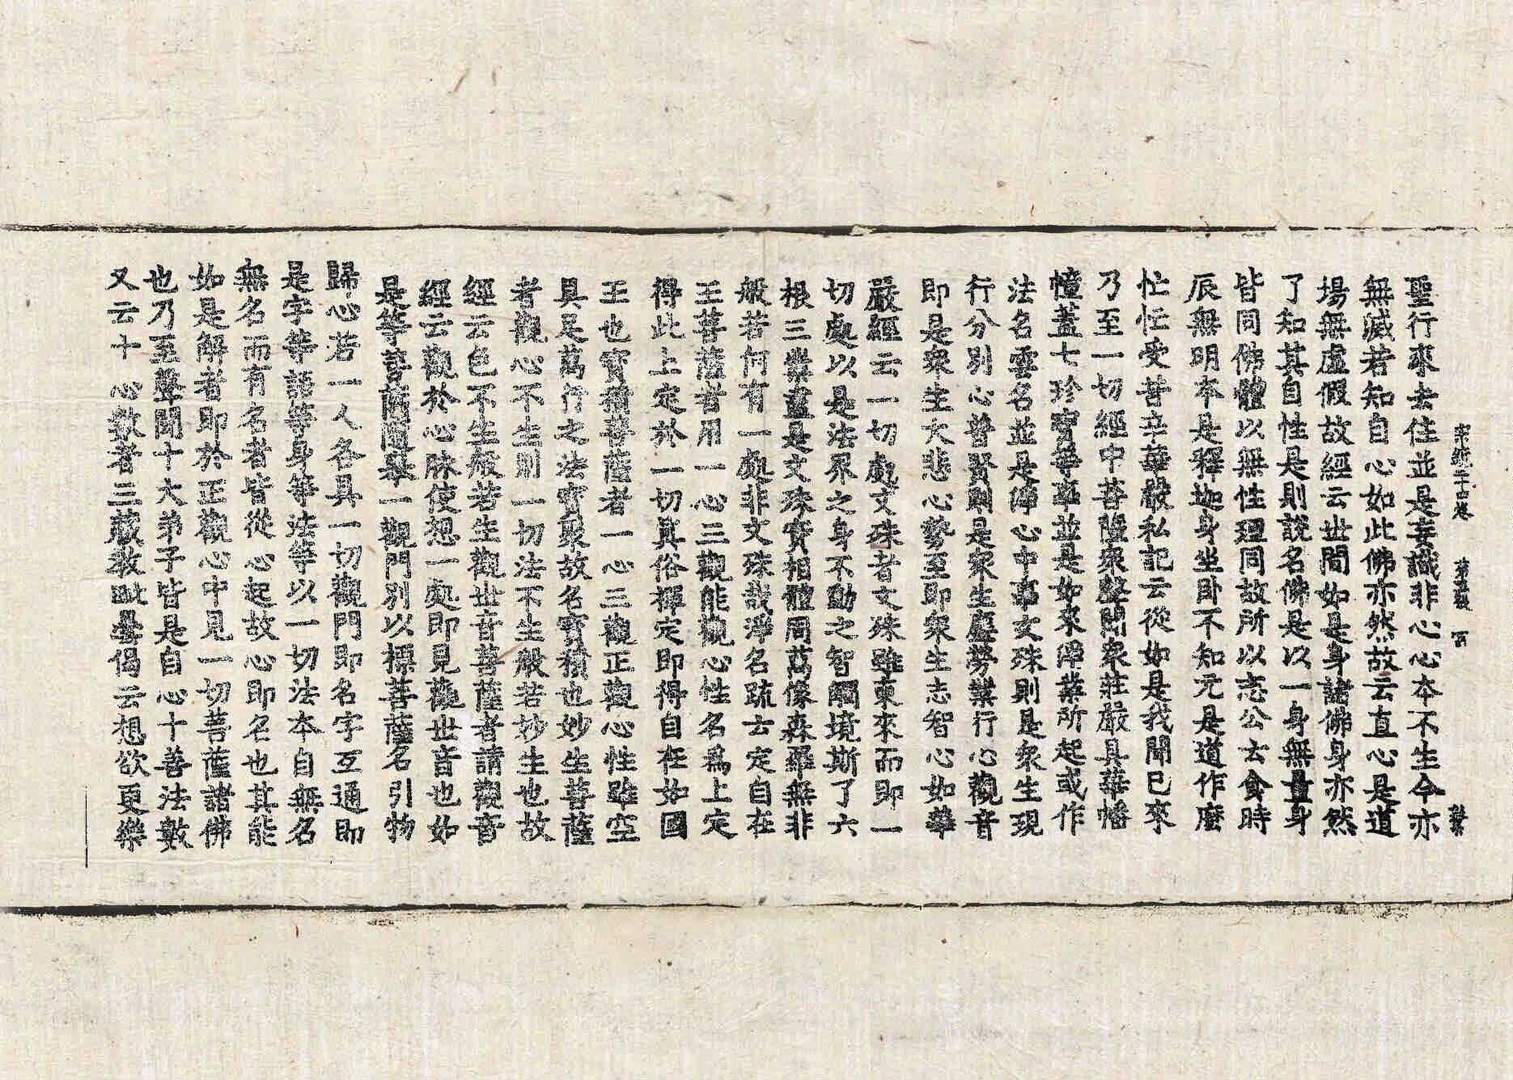 宗鏡二十四卷 第 張
聖行來去住並是妄識非心心本不生今亦
無滅若知自心如此佛亦然故云直心是道
場無虛假故經云世間如是身諸佛身亦然
了知其自性是則說名佛是以一身無量身
皆同佛體以無性理同故所以志公云食時
辰無明本是釋迦身坐臥不知元是道作麼
忙忙受苦辛華嚴私記云從如是我聞已來
乃至一切經中菩薩衆聲聞衆莊嚴具華幡
幢蓋七珍寶等事並是如來淨業所起或作
法名雲名並是淨心中事文殊則是衆生現
行分別心普賢則是衆生塵勞業行心觀音
即是衆生大悲心勢至即衆生志智心如華
嚴經云一切處文殊者文殊雖東來而即一
切處以是法界之身不動之智觸境斯了六
根三業盡是文殊實相體周萬像森羅無非
般若何有一處非文殊哉淨名疏云定自在
王菩薩者用一心三觀能觀心性名爲上定
得此上定於一切真俗禪定即得自在如國
王也寶積菩薩者一心三觀正觀心性雖空
具足萬行之法寶聚故名寶積也妙生菩薩
者觀心不生則一切法不生般若妙生也故
經云色不生般若生觀世音菩薩者請觀音
經云觀於心脉使想一處即見觀世音也如
是等菩薩隨舉一觀門別以標菩薩名引物
歸心若一人各具一切觀門即名字互通即
是字等語等身等法等以一切法本自無名
無名而有名者皆從心起故心即名也其能
如是解者即於正觀心中見一切菩薩諸佛
也乃至聲聞十大弟子皆是自心十善法數
又云十心數者三藏教毗曇偈云想欲更樂